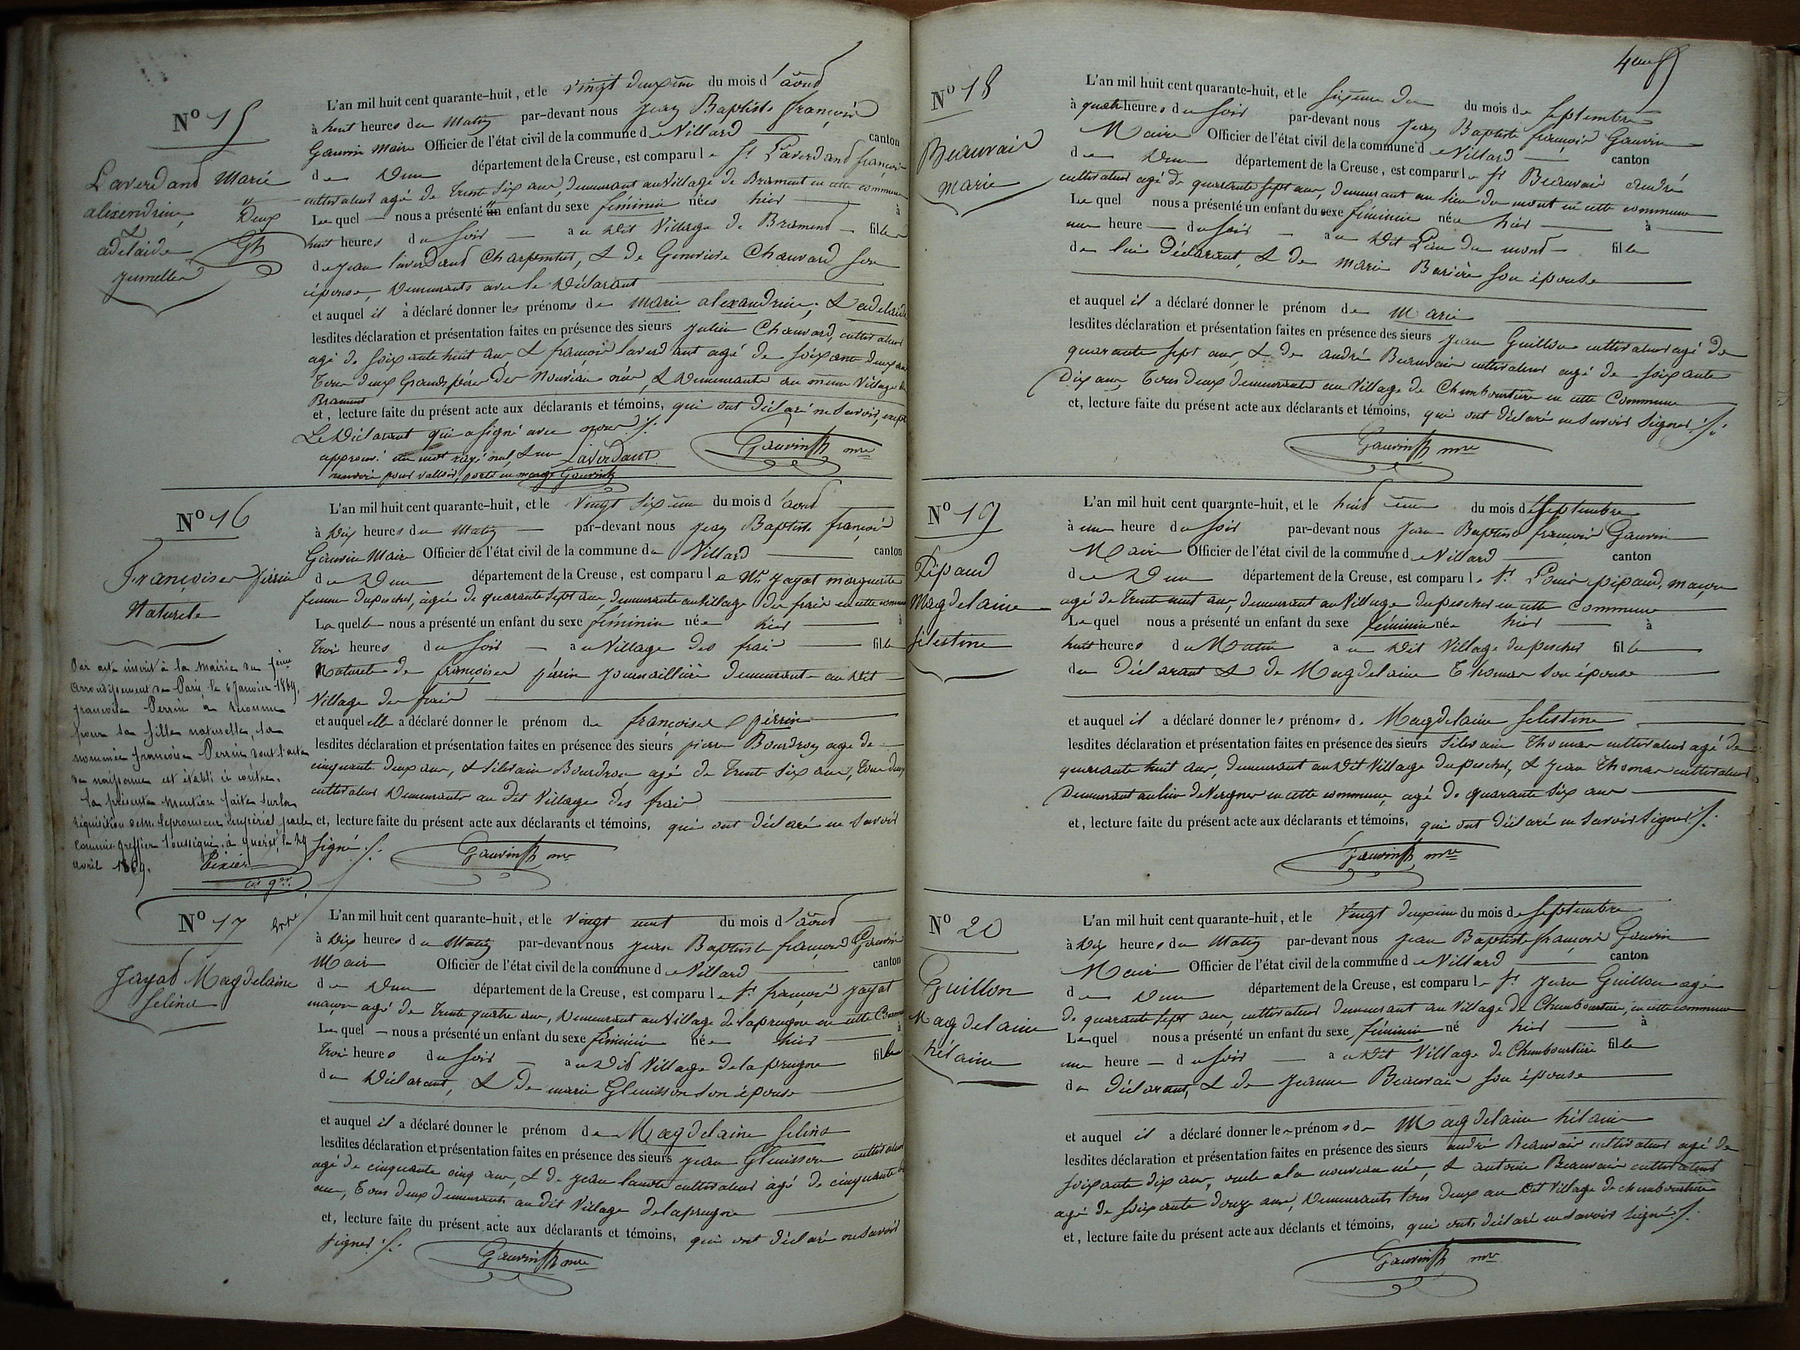 N° 15
Laverdand Marie
alixendrine,
Deux
adelaide
Gh
jumelles
L'an mil huit cent quarante-huit, et le vingt deuxieme du mois d'août
à huit heures du Matin par-devant nous Jean Baptiste françois
Gauvin Maire Officier de l'état civil de la commune de Villard canton
de Dun département de la Creuse, est comparu le Sr Laverdand françois
cultivateur agé de trente six ans, demeurant au Village de Brament en cette commune
Le quel nous a présenté un enfant du sexe féminin nées hier à
huit heures du soir au dit Village de Brament filles
de Jean laverdand Charpentier, & de Geneviève Chauvard son
épouse, Demeurants avec le Déclarant
et auquel il a déclaré donner les prénoms de Marie alexandrine, & adelaide
lesdites déclaration et présentation faites en présence des sieurs Julien Chauvard, cultivateur
agé de soixante huit ans & françois laverdant agé de soixante deux ans
Tous deux Grands pères Des Nouveau nées, & Demeurants au même Village de
Brament
et, lecture faite du présent acte aux déclarants et témoins, qui ont déclaré ne savoir, excepté
Le Déclarant qui a signé avec nous ./.
approuvé un mot rayé nul & un Laverdant Gauvin mre
renvoi pour valloir, porté en marge Gauvin
N° 16
Françoise Perrin
Naturele
Par acte inscrit à la Mairie du 7eme
arrondissement de Paris, le 6 Janvier 1869,
francoise Perrin a reconnu
pour sa fille naturelle, la
nommée françoise Perrin dont l'acte
de naissance est établi ci contre.
La présente mention faite sur la
réquisition de Mr le procureur impérial, par le
commis greffier soussigné, à Guéret, le 29
avril 1869.
Pixier
cs ger
L'an mil huit cent quarante-huit, et le Vingt sixieme du mois d'août
à Dix heures du Matin par-devant nous Jean Baptiste françois
Gauvin Maire Officier de l'état civil de la commune de Villard canton
de Dun département de la Creuse, est comparu le Me Jayat marguerite
femme dupeschet, agée de quarante sept ans, demeurante au Village des frais en cette commune
La quelle nous a présenté un enfant du sexe féminin née hier à
Trois heures du soir au Village des frais fille
Naturele de françoise périn journalière demeurante au dit
Village des frais
et auquel elle a déclaré donner le prénom de françoise périn
lesdites déclaration et présentation faites en présence des sieurs pierre Bourdron agé de
cinquante deux ans, & Silvain Bourdron agé de Trente six ans, Tous deux
cultivateurs Demeurants au dit Village des frais
et, lecture faite du présent acte aux déclarants et témoins, qui ont déclaré ne savoir
signé ./. Gauvin mre
N° 17
Jayat Magdelaine
Seline
L'an mil huit cent quarante-huit, et le vingt neuf du mois d'août
à Dix heures du Matin par-devant nous Jean Baptiste françois Gauvin
Maire Officier de l'état civil de la commune de Villard canton
de Dun département de la Creuse, est comparu le Sr françois Jayat
maçon agé de Trente quatre ans, Demeurant au Village de laprugne en cette Commune
Le quel nous a présenté un enfant du sexe féminin née hier à
Trois heures du soir au Dit Village de la prugne fille
du Déclarant, & De marie Glenisson son épouse
et auquel il a déclaré donner le prénom de Magdelaine Seline
lesdites déclaration et présentation faites en présence des sieurs Jean Glenisson cultivateur
agé de cinquante cinq ans, & de Jean lauvre cultivateur agé de cinquante
ans, Tous deux demeurants au dit Village de laprugne
et, lecture faite du présent acte aux déclarants et témoins, qui ont déclaré ne savoir
signer ./. Gauvin mre
N° 18
Beauvais
Marie
L'an mil huit cent quarante-huit, et le sixieme du du mois de septembre
à quatre heures du soir par-devant nous Jean Baptiste françois Gauvin
Maire Officier de l'état civil de la commune de Villard canton
de Dun département de la Creuse, est comparu le Sr Beauvais andré
cultivateur agé de quarante sept ans, demeurant au lieu du mont en cette commune
Le quel nous a présenté un enfant du sexe féminin née hier à
une heure du soir au Dit Lieu du mont fille
de lui Déclarant, & De marie Barière son épouse
et auquel il a déclaré donner le prénom de Marie
lesdites déclaration et présentation faites en présence des sieurs Jean Guillon cultivateur agé de
quarante sept ans, & de andré Beauvais cultivateur agé de soixante
Dix ans, Tous deux demeurants au Village de Chamboursière en cette Commune
et, lecture faite du présent acte aux déclarants et témoins, qui ont déclaré ne savoir signer ./.
Gauvin mre
N° 19
Pipaud
Magdelaine
Silestine
L'an mil huit cent quarante-huit, et le huitieme du mois de septembre
à une heure du soir par-devant nous Jean Baptiste françois Gauvin
Maire Officier de l'état civil de la commune de Villard canton
de Dun département de la Creuse, est comparu le Sr Louis pipaud, maçon
agé de trente neuf ans, demeurant au Village dupeschet en cette commune
Le quel nous a présenté un enfant du sexe féminin née hier à
huit heures du Matin au Dit Village dupeschet fille
du Déclarant & de Magdelaine Thomas son épouse
et auquel il a déclaré donner les prénoms de Magdelaine Selestine
lesdites déclaration et présentation faites en présence des sieurs Silvain Thomas cultivateur agé de
quarante huit ans, demeurant au Dit Village dupeschet, & Jean Thomas cultivateur
Demeurant au lieu de Vergnes en cette commune, agé de quarante six ans
et, lecture faite du présent acte aux déclarants et témoins, qui ont déclaré ne savoir signer ./.
Gauvin mre
N° 20
Guillon
Magdelaine
hélaine
L'an mil huit cent quarante-huit, et le Vingt deuxieme du mois de septembre
à Dix heures du Matin par-devant nous Jean Baptiste françois Gauvin
Maire Officier de l'état civil de la commune de Villard canton
de Dun département de la Creuse, est comparu le Sr Jean Guillon agé
de quarante sept ans, cultivateur demeurant au Village de Chamboursière, en cette commune
Le quel nous a présenté un enfant du sexe féminin né hier à
une heure du soir au Dit Village de Chamboursière fille
du déclarant, & de Jeanne Beauvais son épouse
et auquel il a déclaré donner le prénoms de Magdelaine hélaine
lesdites déclaration et présentation faites en présence des sieurs andré Beauvais cultivateur agé de
soixante dix ans, oncle a la nouveau née, & antoine Beauvais cultivateur
agé de soixante douze ans, Demeurants tous deux au Dit Village de chamboursière
et, lecture faite du présent acte aux déclants et témoins, qui ont déclaré ne savoir signer ./.
Gauvin mre